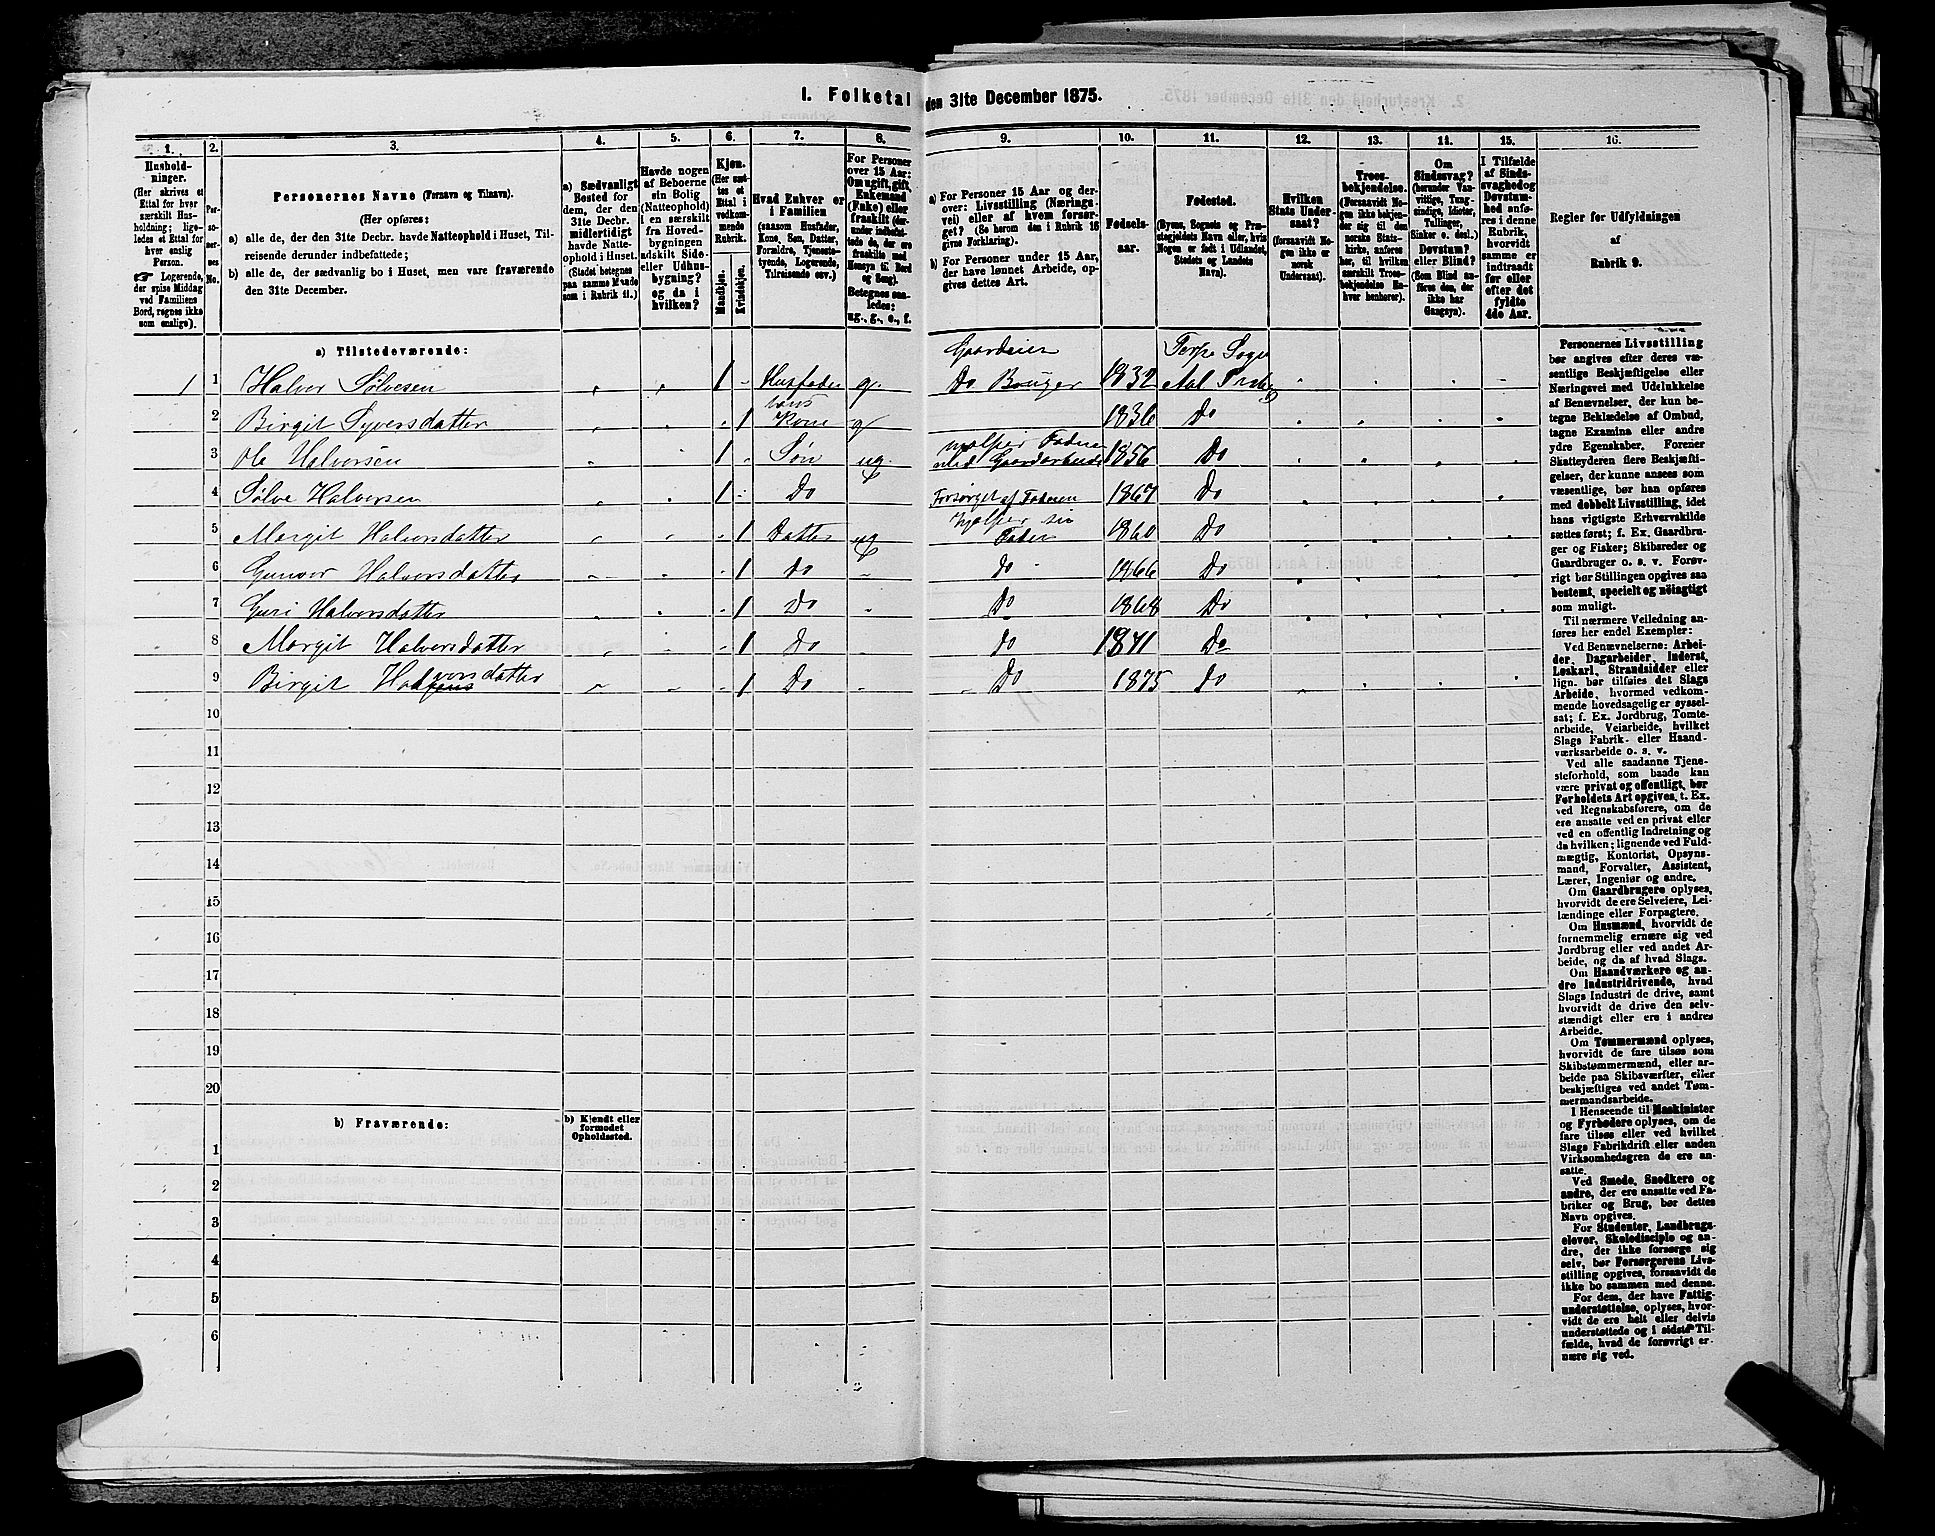 1. Folketal den 31te December 1875.
1. 2. 3. 4. 5. 6. 7. 8. 9. 10. 11. 12. 13. 14. 15. 16.
Hushold-
ninger.
(Her skrives et
Ettal for hver
særskilt Hus-
holdning; lige-
ledes et Ettal for
hver enslig
Person.
☞ Logerende,
der spise Middag
ved Familiens
Bord, regnes ikke
som enslige).
Per-
so-
ner-
nes
No.
Personernes Navne (Fornavn og Tilnavn).
(Her opføres:
a) alle de, der den 31te Decbr. havde Natteophold i Huset, Til-
reisende derunder indbefattede;
b) alle de, der sædvanlig bo i Huset, men vare fraværende
den 31te December.
a) Sædvanligt
Bosted for
dem, der den
31te Decbr.
midlertidigt
havde Natte-
ophold i Huset.
(Stedet betegnes
paa samme Maade
som i Rubrik 11.)
Havde nogen
af Beboerne
sin Bolig
(Natteophold)
i en særskilt
fra Hoved-
bygningen
adskilt Side-
eller Udhus-
bygning?
og da i
hvilken?
Kjøn.
(Her sæt-
tes et
Ettal i
vedkom-
mende
Rubrik.
Mandkjøn.
Kvindekjøn.
Hvad Enhver er
i Familien
(saasom Husfader,
Kone, Søn, Datter,
Forældre, Tjeneste-
tyende, Logerende,
Tilreisende osv.)
For Personer
over 15 Aar:
Om ugift, gift,
Enkemand
(Enke) eller
fraskilt (der-
under indbefat-
tede de, der ere
fraskilte med
Hensyn til Bord
og Seng).
Betegnes saa-
ledes:
ug., g., e., f.
a) For Personer 15 Aar og der-
over: Livsstilling (Nærings-
vei) eller af hvem forsør-
get? (Se herom den i Rubrik 16
givne Forklaring).
b) For Personer under 15 Aar,
der have lønnet Arbeide, op-
gives dettes Art.
Fødsels-
aar.
Fødested.
(Byens, Sognets og Præ-
stegjeldets Navn eller, hvis
Nogen er født i Udlandet,
Stedets og Landets
Navn).
Hvilken
Stats Under-
saat?
(forsaavidt No-
gen ikke er
norsk
Undersaat).
Troes-
bekjendelse.
(Forsaavidt No-
gen ikke bekjen-
der sig til den
norske Stats-
kirke, anføres
her, til hvilken
særskilt Troes-
bekjendelse En-
hver henhører).
Om
Sindssvag?
(herunder Van-
vittige, Tung-
sindige, Idioter,
Tullinger,
Sinker o. desl.)
Døvstum?
eller Blind?
(Som Blind an-
føres den, der
ikke har
Gangsyn).
I Tilfælde
af Sinds-
svaghed og
Døvstum-
hed anfø-
res i denne
Rubrik,
hvorvidt
samme er
indtraadt
før eller
efter det
fyldte
4de Aar.
Regler for Udfyldningen
af
Rubrik 9.
a) Tilstedeværende:
1 1 Halvor Sølvesen 1 - Husfader g. Gaardeier Do Bruger 1832 Torpe Sogn Aal
2 Birgit Syversdatter 1 hans Kone g 1836 Do
3 Ole Halvorsen 1 Søn ug. hjælper Faderen med Gaardarbeide 1856 Do
4 Sølve Halvorsen 1 Do Forsørget af Faderen 1867 Do
5 Margit Halvorsdatter 1 Datter ug hjælper sin Fader 1860 Do
6 Gunvor Halvorsdatter 1 Do - Do 1866 Do
7 Guri Halvorsdatter 1 Do - Do 1868 Do
8 Margit Halvorsdatter 1 Do - Do 1871 Do
9 Birgit Halvorsdatter 1 Do - Do 1875 Do
10
11
12
13
14
15
16
17
18
19
20
b) Fraværende:
b) Kjendt eller
formodet
Opholdssted.
1
2
3
4
5
6
Personernes Livsstilling
bør angives efter deres væ-
sentlige Beskjæftigelse eller
Næringsvei med Udelukkelse
af Benævnelser, der kun be-
tegne Beklædelse af Ombud,
tagne Examina eller andre
ydre Egenskaber. Forener
Skatteyderen flere Beskjæfti-
gelser, der kunne ansees som
væsentlige, bør han opføres
med dobbelt Livsstilling, idet
hans vigtigste Erhvervskilde
sættes først; f. Ex. Gaardbru-
ger og Fisker; Skibsreder og
Gaardbruger o. s. v. Forøv-
rigt bør Stillingen opgives saa
bestemt, specielt og nöiagtigt
som muligt.
Til nærmere Veiledning an-
føres her endel Exempler:
Ved Benævnelserne: Arbei-
der, Dagarbeider, Inderst,
Løskarl, Strandsidder eller
lign. bør tilføies det Slags
Arbeide, hvormed vedkom-
mende hovedsagelig er syssel-
sat; f. Ex. Jordbrug, Tomte-
arbeide, Veiarbeide, hvilket
Slags Fabrik- eller Haand-
værksarbeide o. s. v.
Ved alle saadanne Tjene-
steforhold, som baade kan
være privat og offentligt, bør
Forholdets Art opgives, t. Ex.
ved Regnskabsførere, om de
ere ansatte ved en privat eller
ved en offentlig Indretning og
da hvilken; lignende ved Fuld-
mægtig, Kontorist, Opsyns-
mand, Forvalter, Assistent,
Lærer, Ingeniør og andre.
Om Gaardbrugere oplyses,
hvorvidt de ere Selveiere, Lei-
lændinge eller Forpagtere.
Om Husmænd, hvorvidt de
fornemmelig ernære sig ved
Jordbrug eller ved andet Ar-
beide, og da af hvad Slags.
Om Haandværkere og an-
dre Industridrivende, hvad
Slags Industri de drive, samt
hvorvidt de drive den selv-
stændigt eller ere i andres
Arbeide.
Om Tømmermænd oplyses,
hvorvidt de fare tilsøs som
Skibstømmermænd, eller ar-
beide paa Skibsværfter, eller
beskjæftiges ved andet Tøm-
mermandsarbeide.
I Henseende til Maskinister
og Fyrbødere oplyses, om de
fare tilsøs eller ved hvilket
Slags Fabrikdrift eller anden
Virksomhedsgren de ere an-
satte.
Ved Smede, Snedkere og
andre, der ere ansatte ved Fa-
briker og Brug, bør dettes
Navn opgives.
For Studenter, Landbrugs-
elever, Skoledisciple og an-
dre, der ikke forsørge sig
selv, bør Forsørgerens Livs-
stilling opgives, forsaavidt de
ikke bo sammen med denne.
For dem, der have Fattig-
understøttelse, oplyses, hvor-
vidt de ere helt eller delvis
understøttede og i sidste Til-
fælde, hvad de forøvrigt er-
nære sig ved.